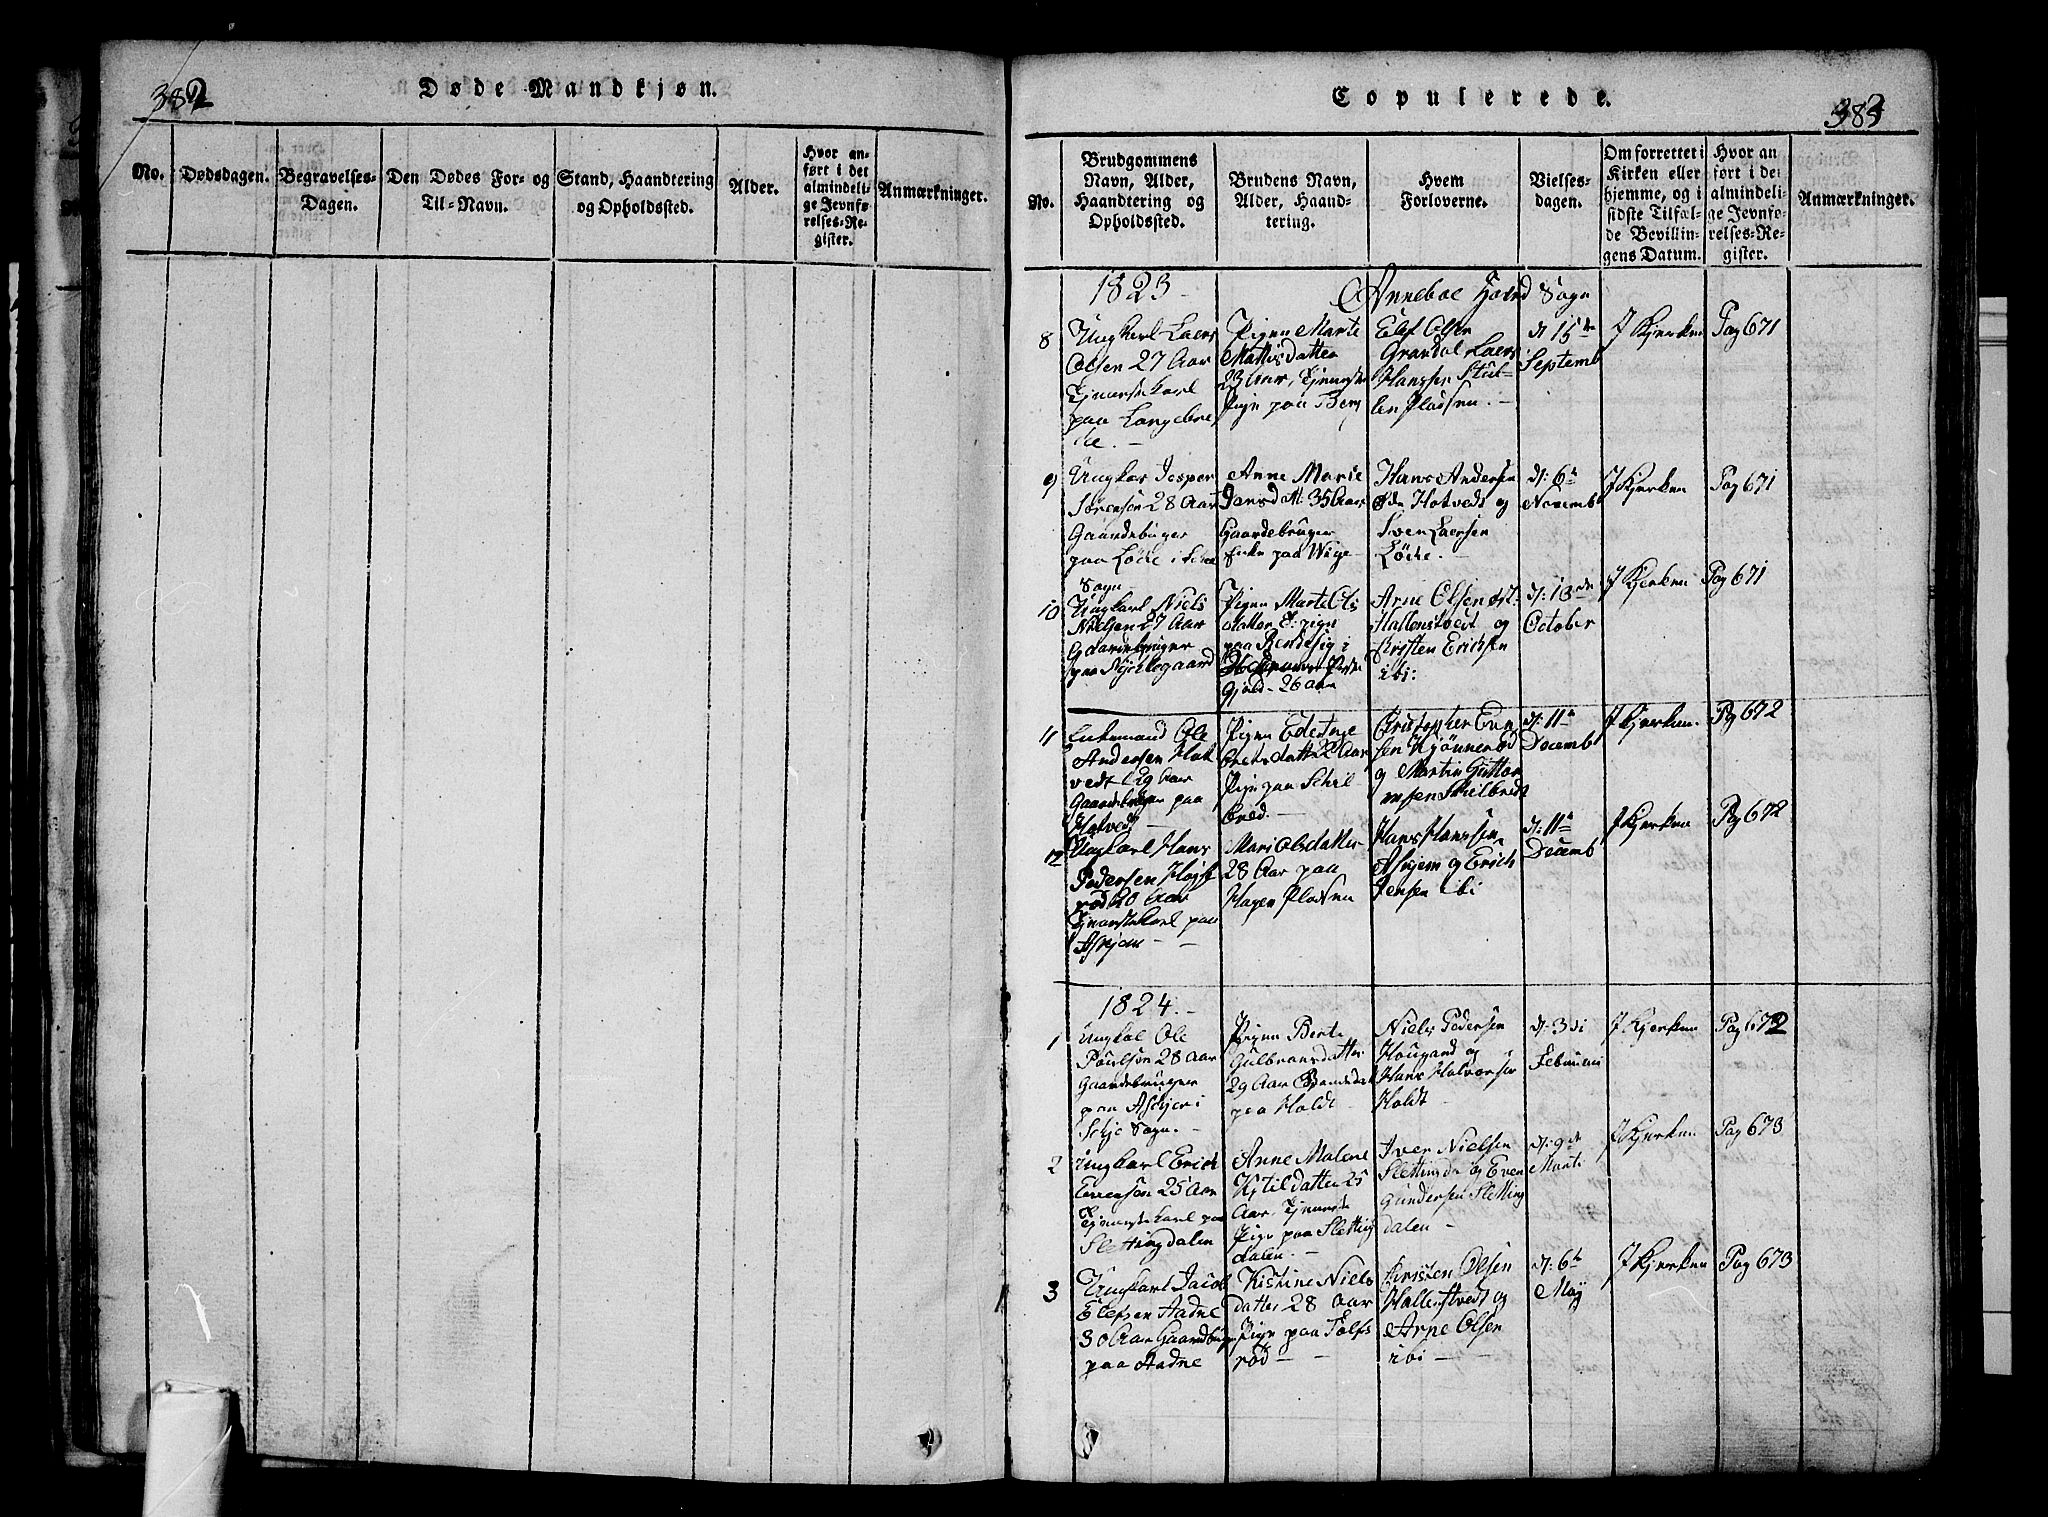 382
Døde Mandkjøn.
No.
Dødsdagen.
Begravelses-
Dagen.
Den Dødes For- og
Til-Navn.
Stand, Haandtering
og Opholdssted.
Alder.
Hvor an-
ført i det
almindeli-
ge Jevnfø-
relses-Re-
gister.
Anmærkninger.
Copulerede.
383
No.
Brudgommens
Navn, Alder,
Haandtering og
Opholdssted.
Brudens Navn,
Alder, Haand-
tering.
Hvem
Forloverne.
Vielses-
dagen.
Om forrettet i
Kirken eller
hjemme, og i
sidste Tilfæl-
de Bevillin-
gens Datum.
Hvor an
ført i de
almindeli-
ge Jevnfø-
relses-Re-
gister.
Anmærkninger.
1823
Sogn
8
Ungkarl Laers
Olsen 27 Aar
Tjenestekarl
paa Langebre
ke.
Pigen Marte
Mattisdatter
23 Aar, Tjeneste
Pige paa Berg
Elef Olsen
Grandal Laers
Hanssen Stub-
len Pladsen.
d 15de
Septemb
I Kjerken
Pag 671
9
Ungkar Jesper
Sørensen 28 Aar
Gaardebruger
paa Løcke i
Sogn
Anne Marie
35 Aar
Gaardebruger
Enke paa
Hans Andersen
Hotvedt og
Sven Laersen
Løcke.
d: 6te
Novemb
I Kjerken
Pag 671
10
Ungkarl Niels
Nielsen 27 Aar
Gaardebruger
paa
Pigen Marte Ols
datter T: pige
paa i
Gjeld - 26 Aar
Arne Olsen Øst:
Hallenstvedt og
Kirsten Ericksen
ibi:
d: 13de
October
I Kjerken
Pag 671
11
Enkemand Ole
Andersen Hot
vedt 29 Aar
Gaardebruger paa
Hotvedt
Pigen Edel Inge
brets datt 22 Aar
Pige paa Schil
bred.
Cristopher Even
sen Kjønnerød
og Martin Guttor
msen Skilbredt
d: 11te
Decemb
I Kjerken.
Pag 672
12
Ungkarl Hans
Pedersen Høgst
rød 20 Aar
Tjenestekarl paa
Askjem
Mari Olsdatter
28 Aar paa
Hagen Pladsen
Hans Hanssen
Askjem og Erich
Jensen ibi
d: 11te
Decemb
I Kjerken
Pag 672
1824.
1
Ungkal Ole
Poulsen 28 Aar
Gaardebruger
paa Askjer i
Sogn.
Pigen Berte
Gulbransdatter
29 Aar
paa Holdt
Niels Pedersen
Hougand og
Hans Halvorsen
Holdt
d: 3di
Februari
I Kjerken
Pag 672
2
Ungkarl Erich
25 Aar
Tjenestekarl paa
Slettingdalen
Anne Malene
Kjtildatter 25
Aar, Tjeneste
Pige paa Sletting
dalen.
Iver Nielsen
Slettingda og Even
Gundersen Sletting
dalen
d: 9de
Marti
I Kjerken
Pag 673
3
Ungkarl Jacob
Elefsen Aadne
30 Aar Gaardbruger
paa Aadne
Kistine Niels
datter 28 Aar
Pige paa Tolfs
rød
Kirsten Olsen
Hallenstvedt og
Arne Olsen
ibi
d: 6te
Maj
I Kjerken
Pag 673